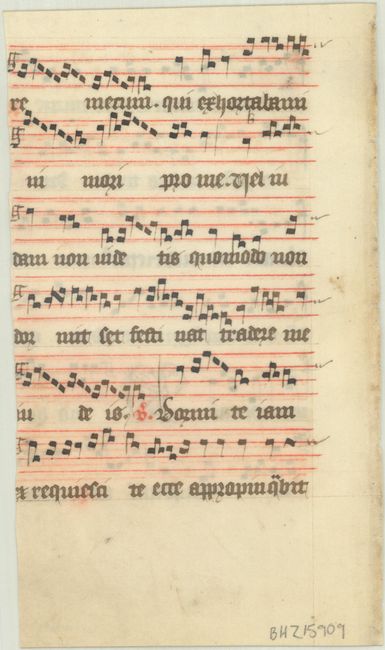 re mecum. qui exhortabami
ni mori pro me. Vel iu
dam non vide tis quomodo non
dor mit set festi nat tradere me
iu de is. v. Dormi te iam
et requiesci te ecce appropinqbit
BHZ15909